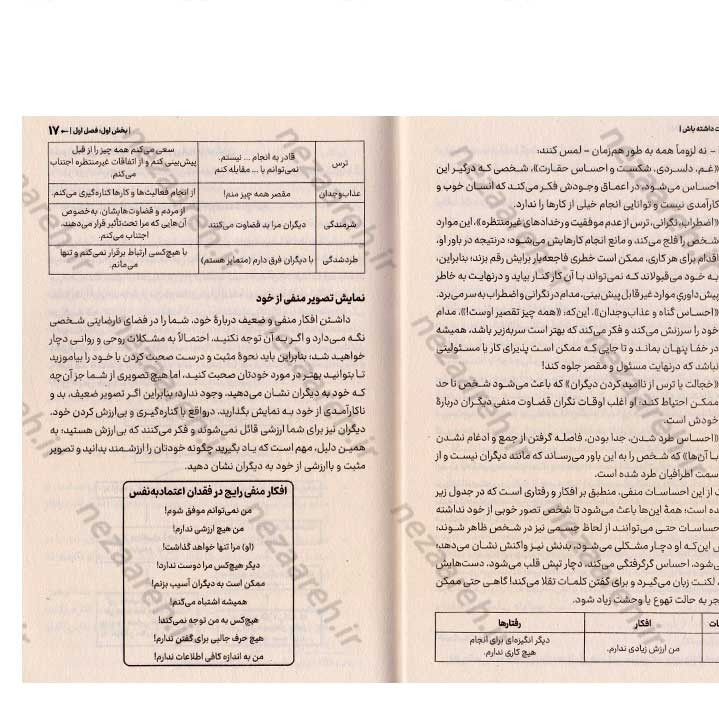 ت داشته باش |
- نه لزوماً همه به طور هم‌زمان - لمس کنند:
«غم، دلسردی، شکست و احساس حقارت»، شخصی که درگیر این
احساس می‌شود، در اعماق وجودش فکر می‌کند که انسان خوب و
کارآمدی نیست و توانایی انجام خیلی از کارها را ندارد.
«اضطراب، نگرانی، ترس از عدم موفقیت و رخدادهای غیرمنتظره»، این موارد
شخص را فلج می‌کند و مانع انجام کارهایش می‌شود؛ درنتیجه در باور او،
اقدام برای هر کاری، ممکن است خطری فاجعه‌بار برایش رقم بزند؛ بنابراین،
به خود می‌قبولاند که نمی‌تواند با آن کار کنار بیاید و درنهایت به خاطر
پیش‌داوریِ موارد غیرقابل پیش‌بینی، مدام در نگرانی و اضطراب به سر می‌برد.
«احساس گناه و عذاب‌وجدان»، این‌که: «همه چیز تقصیر اوست!»، مدام
خود را سرزنش می‌کند و فکر می‌کند که بهتر است سربه‌زیر باشد، همیشه
در خفا پنهان بماند و تا جایی که ممکن است پذیرای کار یا مسئولیتی
نباشد که درنهایت مسئول و مقصر جلوه کند!
«خجالت یا ترس از ناامید کردن دیگران» که باعث می‌شود شخص تا حد
ممکن احتیاط کند. او اغلب اوقات نگران قضاوت منفی دیگران دربارهٔ
خودش است.
«احساس طرد شدن، جدا بودن، فاصله گرفتن از جمع و ادغام نشدن
با آن‌ها» که شخص را به این باور می‌رساند که مانند دیگران نیست و از
سمت اطرافیان طرد شده است.
د از این احساسات منفی، منطبق بر افکار و رفتاری است که در جدول زیر
ده است؛ همهٔ این‌ها باعث می‌شود تا شخص تصور خوبی از خود نداشته
حساسات حتی می‌توانند از لحاظ جسمی نیز در شخص ظاهر شوند؛
این‌که او دچار مشکلی می‌شود، بدنش نیز واکنش نشان می‌دهد؛
ی‌شود، احساس گرگرفتگی می‌کند، دچار تپش قلب می‌شود، دست‌هایش
لکنت زبان می‌گیرد و برای گفتن کلمات تقلا می‌کند! گاهی حتی ممکن
جر به حالت تهوع یا وحشت زیاد شود.
ات افکار رفتارها
من ارزش زیادی ندارم. دیگر انگیزه‌ای برای انجام
هیچ کاری ندارم.
| بخش اول: فصل اول | ← ۱۷
ترس قادر به انجام ... نیستم. سعی می‌کنم همه چیز را از قبل
نمی‌توانم با ... مقابله کنم پیش‌بینی کنم و از اتفاقات غیرمنتظره اجتناب
می‌کنم.
عذاب‌وجدان مقصر همه چیز منم! از انجام فعالیت‌ها و کارها کناره‌گیری می‌کنم.
شرمندگی دیگران مرا بد قضاوت می‌کنند از مردم و قضاوت‌هایشان، به‌خصوص
آن‌هایی که مرا تحت‌تأثیر قرار می‌دهند،
اجتناب می‌کنم.
طردشدگی با دیگران فرق دارم (متمایز هستم) با هیچ‌کسی ارتباط برقرار نمی‌کنم و تنها
می‌مانم.
نمایش تصویر منفی از خود
داشتن افکار منفی و ضعیف دربارهٔ خود، شما را در فضای نارضایتی شخصی
نگه می‌دارد و اگر به آن توجه نکنید، احتمالاً به مشکلات روحی و روانی دچار
خواهید شد؛ بنابراین باید نحوهٔ مثبت و درست صحبت کردن با خود را بیاموزید
تا بتوانید بهتر در مورد خودتان صحبت کنید، اما هیچ تصویری از شما جز آن‌چه
که خود به دیگران نشان می‌دهید، وجود ندارد؛ بنابراین اگر تصویر ضعیف، بد و
ناکارآمدی از خود به نمایش بگذارید، درواقع با کناره‌گیری و بی‌ارزش کردن خود،
دیگران نیز برای شما ارزشی قائل نمی‌شوند و فکر می‌کنند که بی‌ارزش هستید؛ به
همین دلیل، مهم است که یاد بگیرید چگونه خودتان را ارزشمند بدانید و تصویر
مثبت و باارزشی از خود به دیگران نشان دهید.
افکار منفی رایج در فقدان اعتمادبه‌نفس
من نمی‌توانم موفق شوم!
من هیچ ارزشی ندارم!
(او) مرا تنها خواهد گذاشت!
دیگر هیچ‌کس مرا دوست ندارد!
ممکن است به دیگران آسیب بزنم!
همیشه اشتباه می‌کنم!
هیچ‌کس به من توجه نمی‌کند!
هیچ حرف جالبی برای گفتن ندارم!
من به اندازه کافی اطلاعات ندارم!
nezaareh.ir